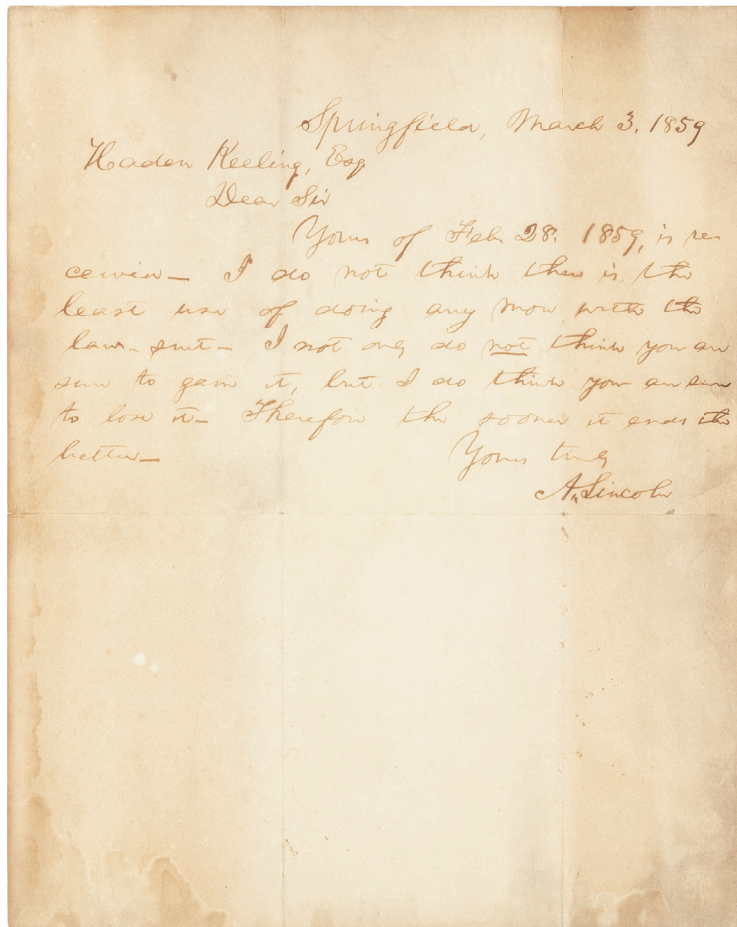 Springfield, March 3. 1859
Haden Keeling, Esq
Dear Sir
Yours of Feb. 28. 1859, is re-
ceived— I do not think there is the
least use of doing any more with the
law-suit— I not only do not think you are
sure to gain it, but I do think you are sure
to lose it— Therefore the sooner it ends the
better—
Yours truly
A. Lincoln